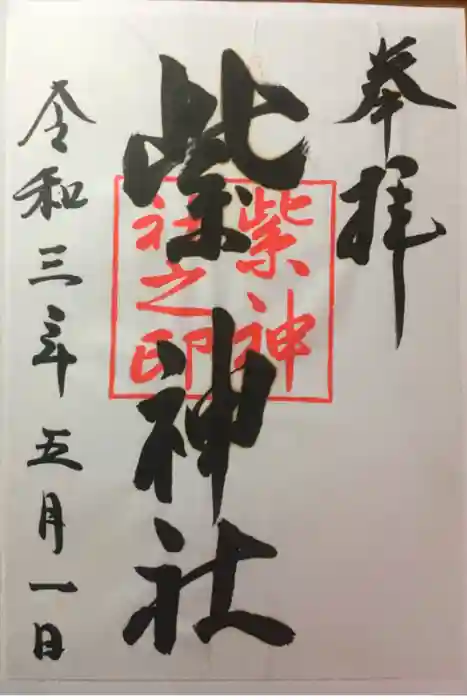 奉拝
紫神社
紫神
社之印
令和三年五月一日